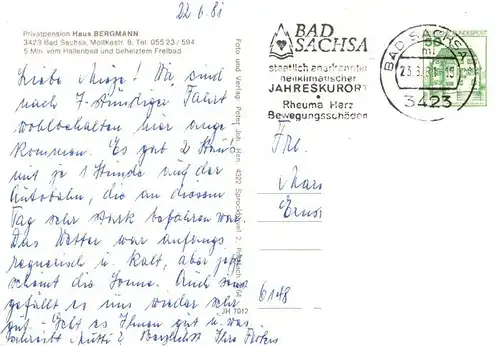 22.6.81
Privatpension Haus BERGMANN
3423 Bad Sachsa, Moltkestr. 8, Tel. 055 23 / 594
5 Min. vom Hallenbad und beheiztem Freibad
Liebe Mieze! Wir sind
nach 7-stündiger Fahrt
wohlbehalten hier ange
kommen. Es gab 2 Staus
mit je 1 Stunde auf der
Autobahn, die an diesem
Tag sehr stark befahren war.
Das Wetter war anfangs
regnerisch u. kalt, aber jetzt
scheint die Sonne. Auch sonst
gefällt es uns wieder sehr
gut. - Geht es Ihnen gut u. was
schreibt Mutti? Herzlichst Ihre
Foto und Verlag: Peter
BAD
SACHSA
staatlich anerkannter
heilklimatischer
JAHRESKURORT
Rheuma Herz
Bewegungsschäden
BAD SACHSA
3423
Frl.
6148
JH 7012